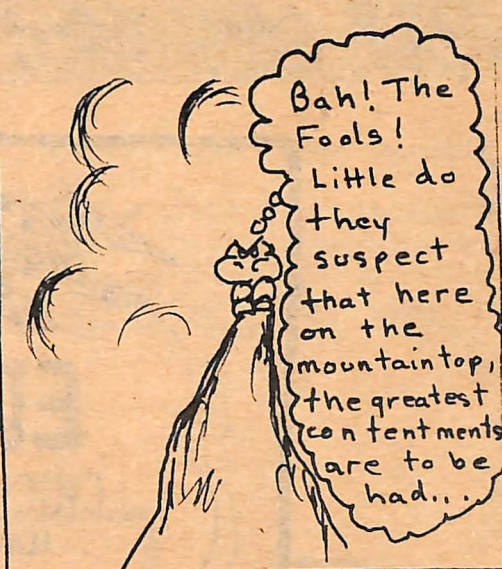 Bah! The
Fools!
Little do
they
suspect
that here
on the
mountaintop,
the greatest
contentments
are to be
had...